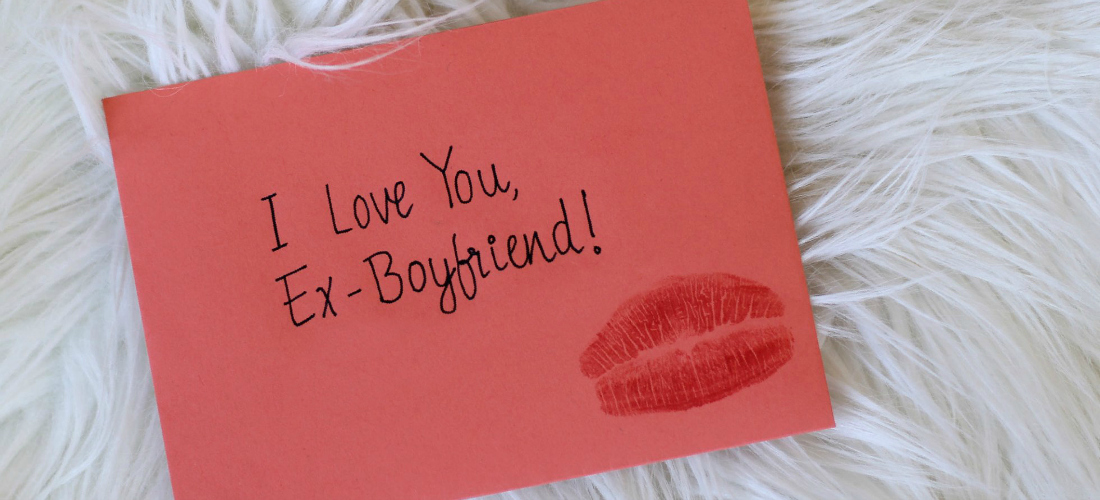 I Love You,
Ex-Boyfriend!